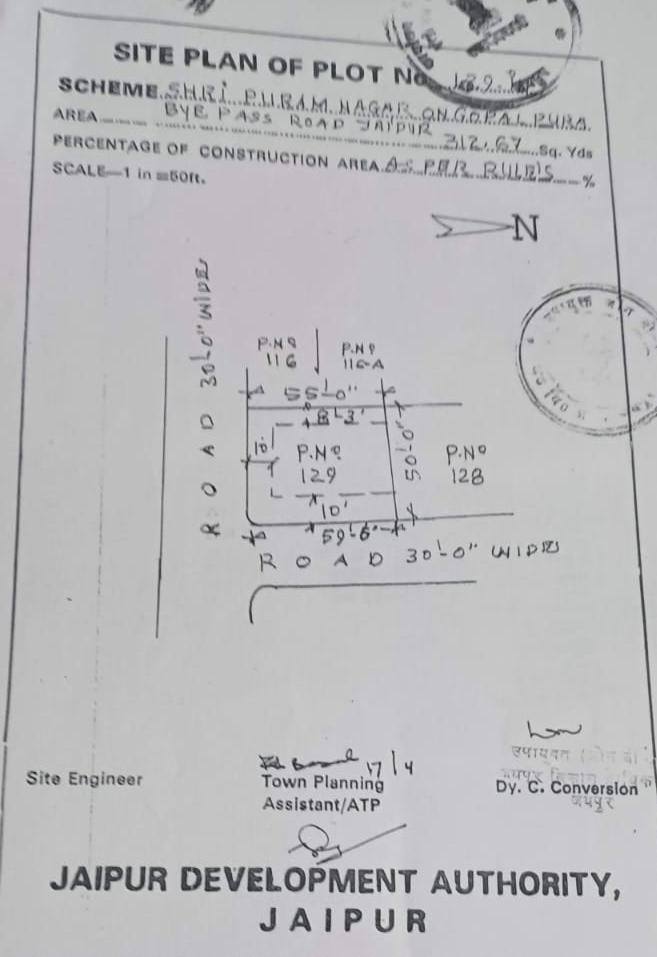 SITE PLAN OF PLOT No. 129
SCHEME SHRI PURAM NAGAR ON GOPALPURA
BYE PASS ROAD JAIPUR
AREA 312.67 Sq. Yds
PERCENTAGE OF CONSTRUCTION AREA AS PER RULES %
SCALE—1 in = 50ft.
N
ROAD 30'-0" WIDE
P.No
116
P.No
116-A
55'-0"
8'-3"
10'
P.No
129
50'-0"
P.No
128
10'
59'-6"
ROAD 30'-0" WIDE
17/4
Site Engineer
Town Planning
Assistant/ATP
उपायुक्त
जयपुर
Dy. C. Conversion
जयपुर
JAIPUR DEVELOPMENT AUTHORITY,
JAIPUR